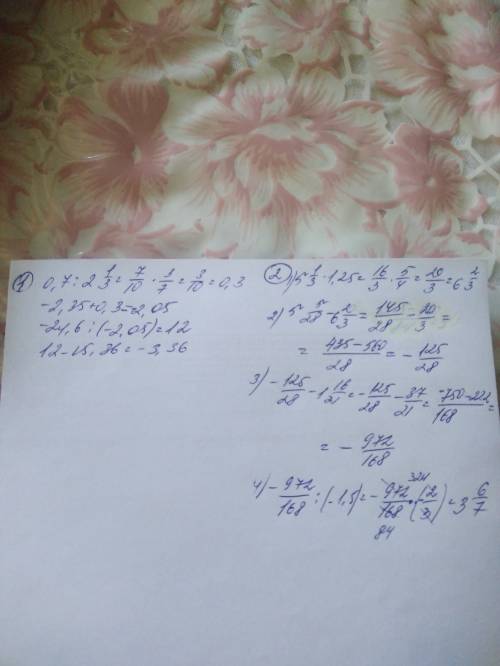 1) 0,7 : 2 1/3 = 7/10 · 3/7 = 3/10 = 0,3
-2,35 + 0,3 = -2,05
-24,6 : (-2,05) = 12
12 - 15,36 = -3,36
2) 1) 5 1/3 · 1,25 = 16/3 · 5/4 = 20/3 = 6 2/3
2) 5 5/28 - 6 2/3 = 145/28 - 20/3 =
= 435-560/28 = - 125/28
3) - 125/28 - 1 16/21 = - 125/28 - 37/21 = -750-222/168 =
= - 972/168
4) - 972/168 : (-1,5) = - 972/168 · (-2/3) = 3 6/7
324
84